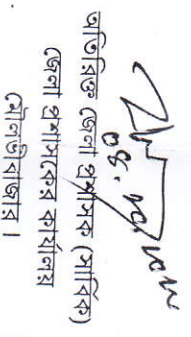 ০৪.১০.২০২২
অতিরিক্ত জেলা প্রশাসক (সার্বিক)
জেলা প্রশাসকের কার্যালয়
মৌলভীবাজার।